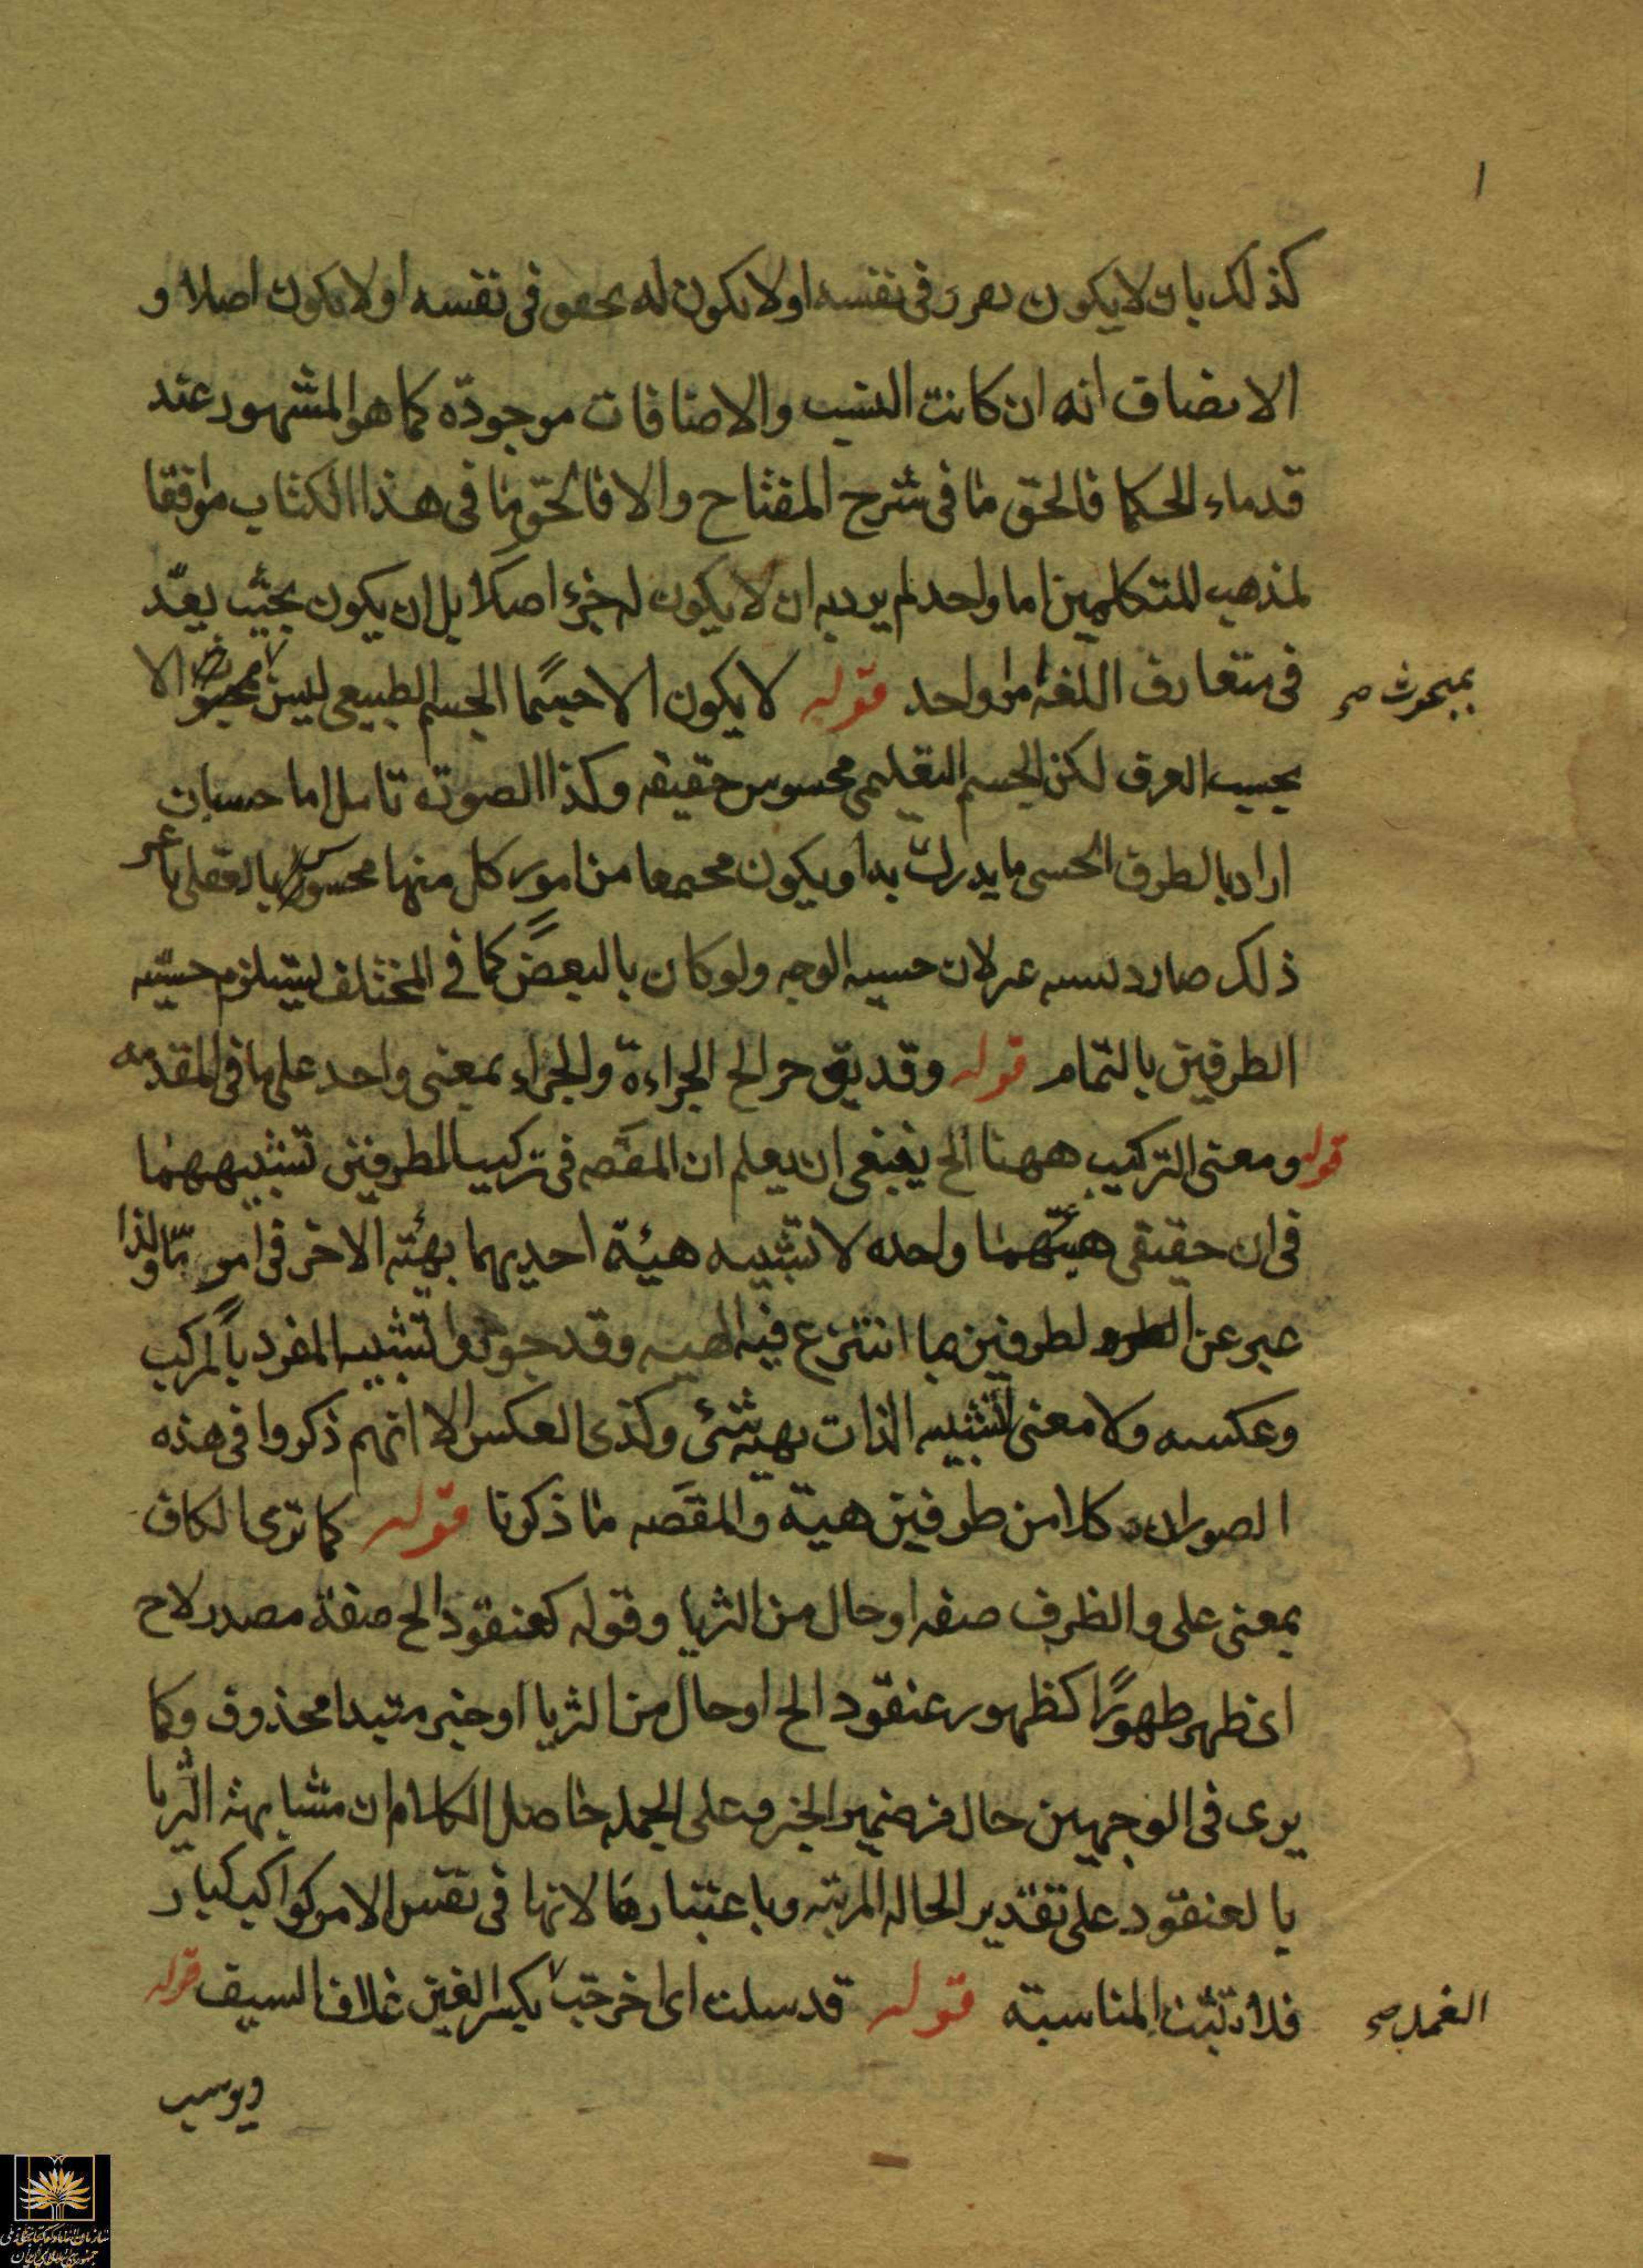 كذلك بان لا يكون تقرر فى نفسه او لا يكون له تحقق فى نفسه او لا يكون اصلا و
الانصاف انه ان كانت النسب والاضافات موجودة كما هو المشهور عند
قدماء الحكما فالحق ما فى شرح المفتاح والا فالحق ما فى هذا الكتاب موافقا
لمذهب المتكلمين اما واحد لم يرد به ان لا يكون له جزء اصلا بل ان يكون بحيث يعدّ
فى متعارف اللغة امرا واحد قوله لا يكون الا حسيّا الجسم الطبيعى ليس الا
بمبحوث صح
بحسب العرف لكن الجسم التعليمى محسوس حقيقه وكذا الصوتة تامل اما حسيان
اراد بالطرف الحسى ما يدرك به او يكون مجتمعا من امور كل منها محسوس بالعقلى
ذلك صار لان حسيه الوجه ولو كان بالبعض كما فى المختلف ليستلزم حسيّه
الطرفين بالتمام قوله وقد يق جرا الخ الجراءة والجراء بمعنى واحد على ما فى المقدمه
قوله ومعنى التركيب ههنا الخ ينبغى ان يعلم ان المقصه فى تركيب الطرفين تشبيههما
فى ان حقيقى هيئتهما واحده لا تشبيه هيئة احديهما بهيئه الاخر فى امر مّا ولذا
عبر عن لطرفين بما انتزع فيه الهيه وقد جوزوا تشبيه المفرد بالمركب
وعكسه ولا معنى لتشبيه الذات بهيه شئ وكذى العكس الا انهم ذكروا فى هذه
الصور ان كلا من طرفين هيئة والمقصه ما ذكرنا قوله كما ترى الكاف
بمعنى على والظرف صفه او حال من الثريا وقوله كعنقود الخ صفة مصدر لاح
اى ظهر ظهورًا كظهور عنقود الخ او حال من الثريا او خبر مبتدا محذوف وكما
يرى فى الوجهين حال من ضمير الخبر وعلى الجمله حاصل الكلام ان مشابهة الثريا
بالعنقود على تقدير الحاله المرتبه وباعتبارها لانها فى نفس الامر كواكب كبار
فلا تثبت المناسبة قوله قد سلت اى اخرجت بكسر الغين غلاف السيف قوله
الغمد صح